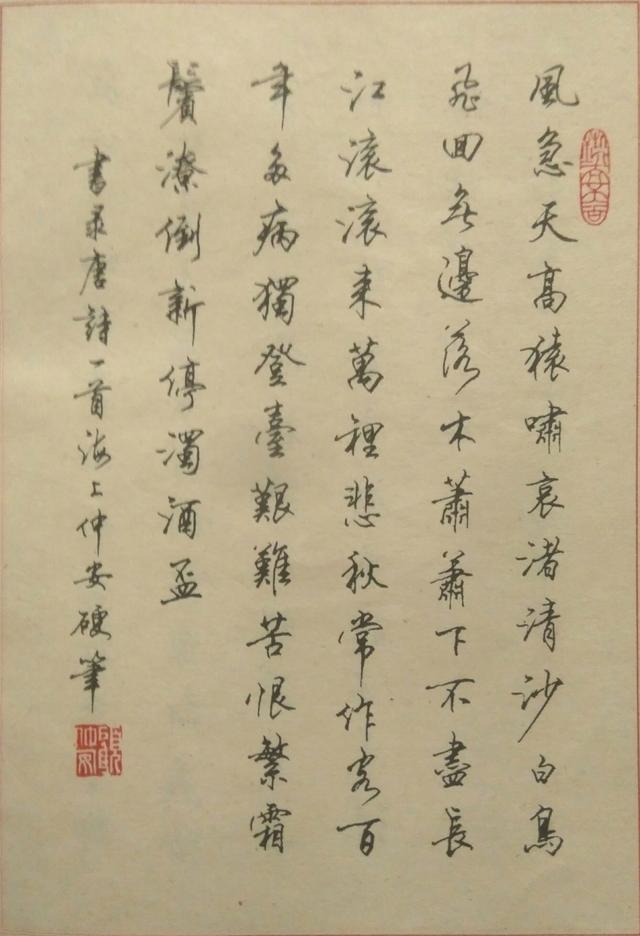 風急天高猿嘯哀渚清沙白鳥
飛回無邊落木蕭蕭下不盡長
江滾滾来萬裡悲秋常作客百
年多病獨登臺艱難苦恨繁霜
鬢潦倒新停濁酒盃
書录唐詩一首海上仲安硬筆